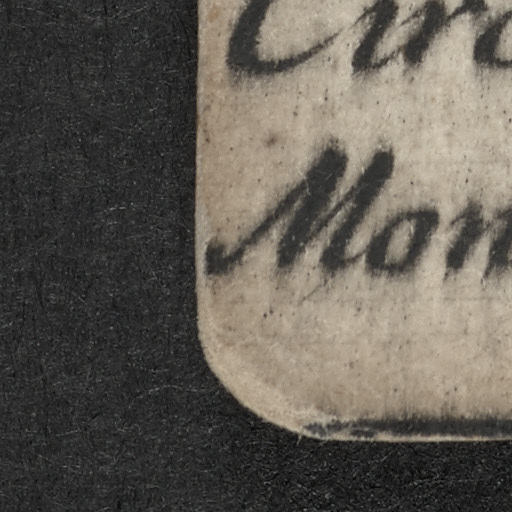 Circ
Mon